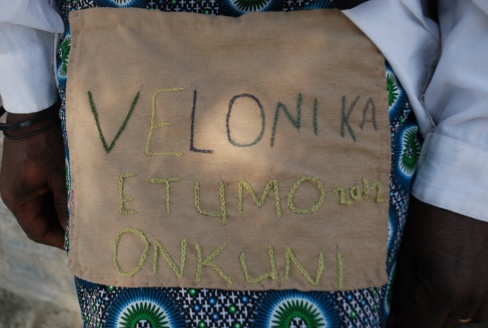 VELONIKA
ETUMO 2012
ONKUNI